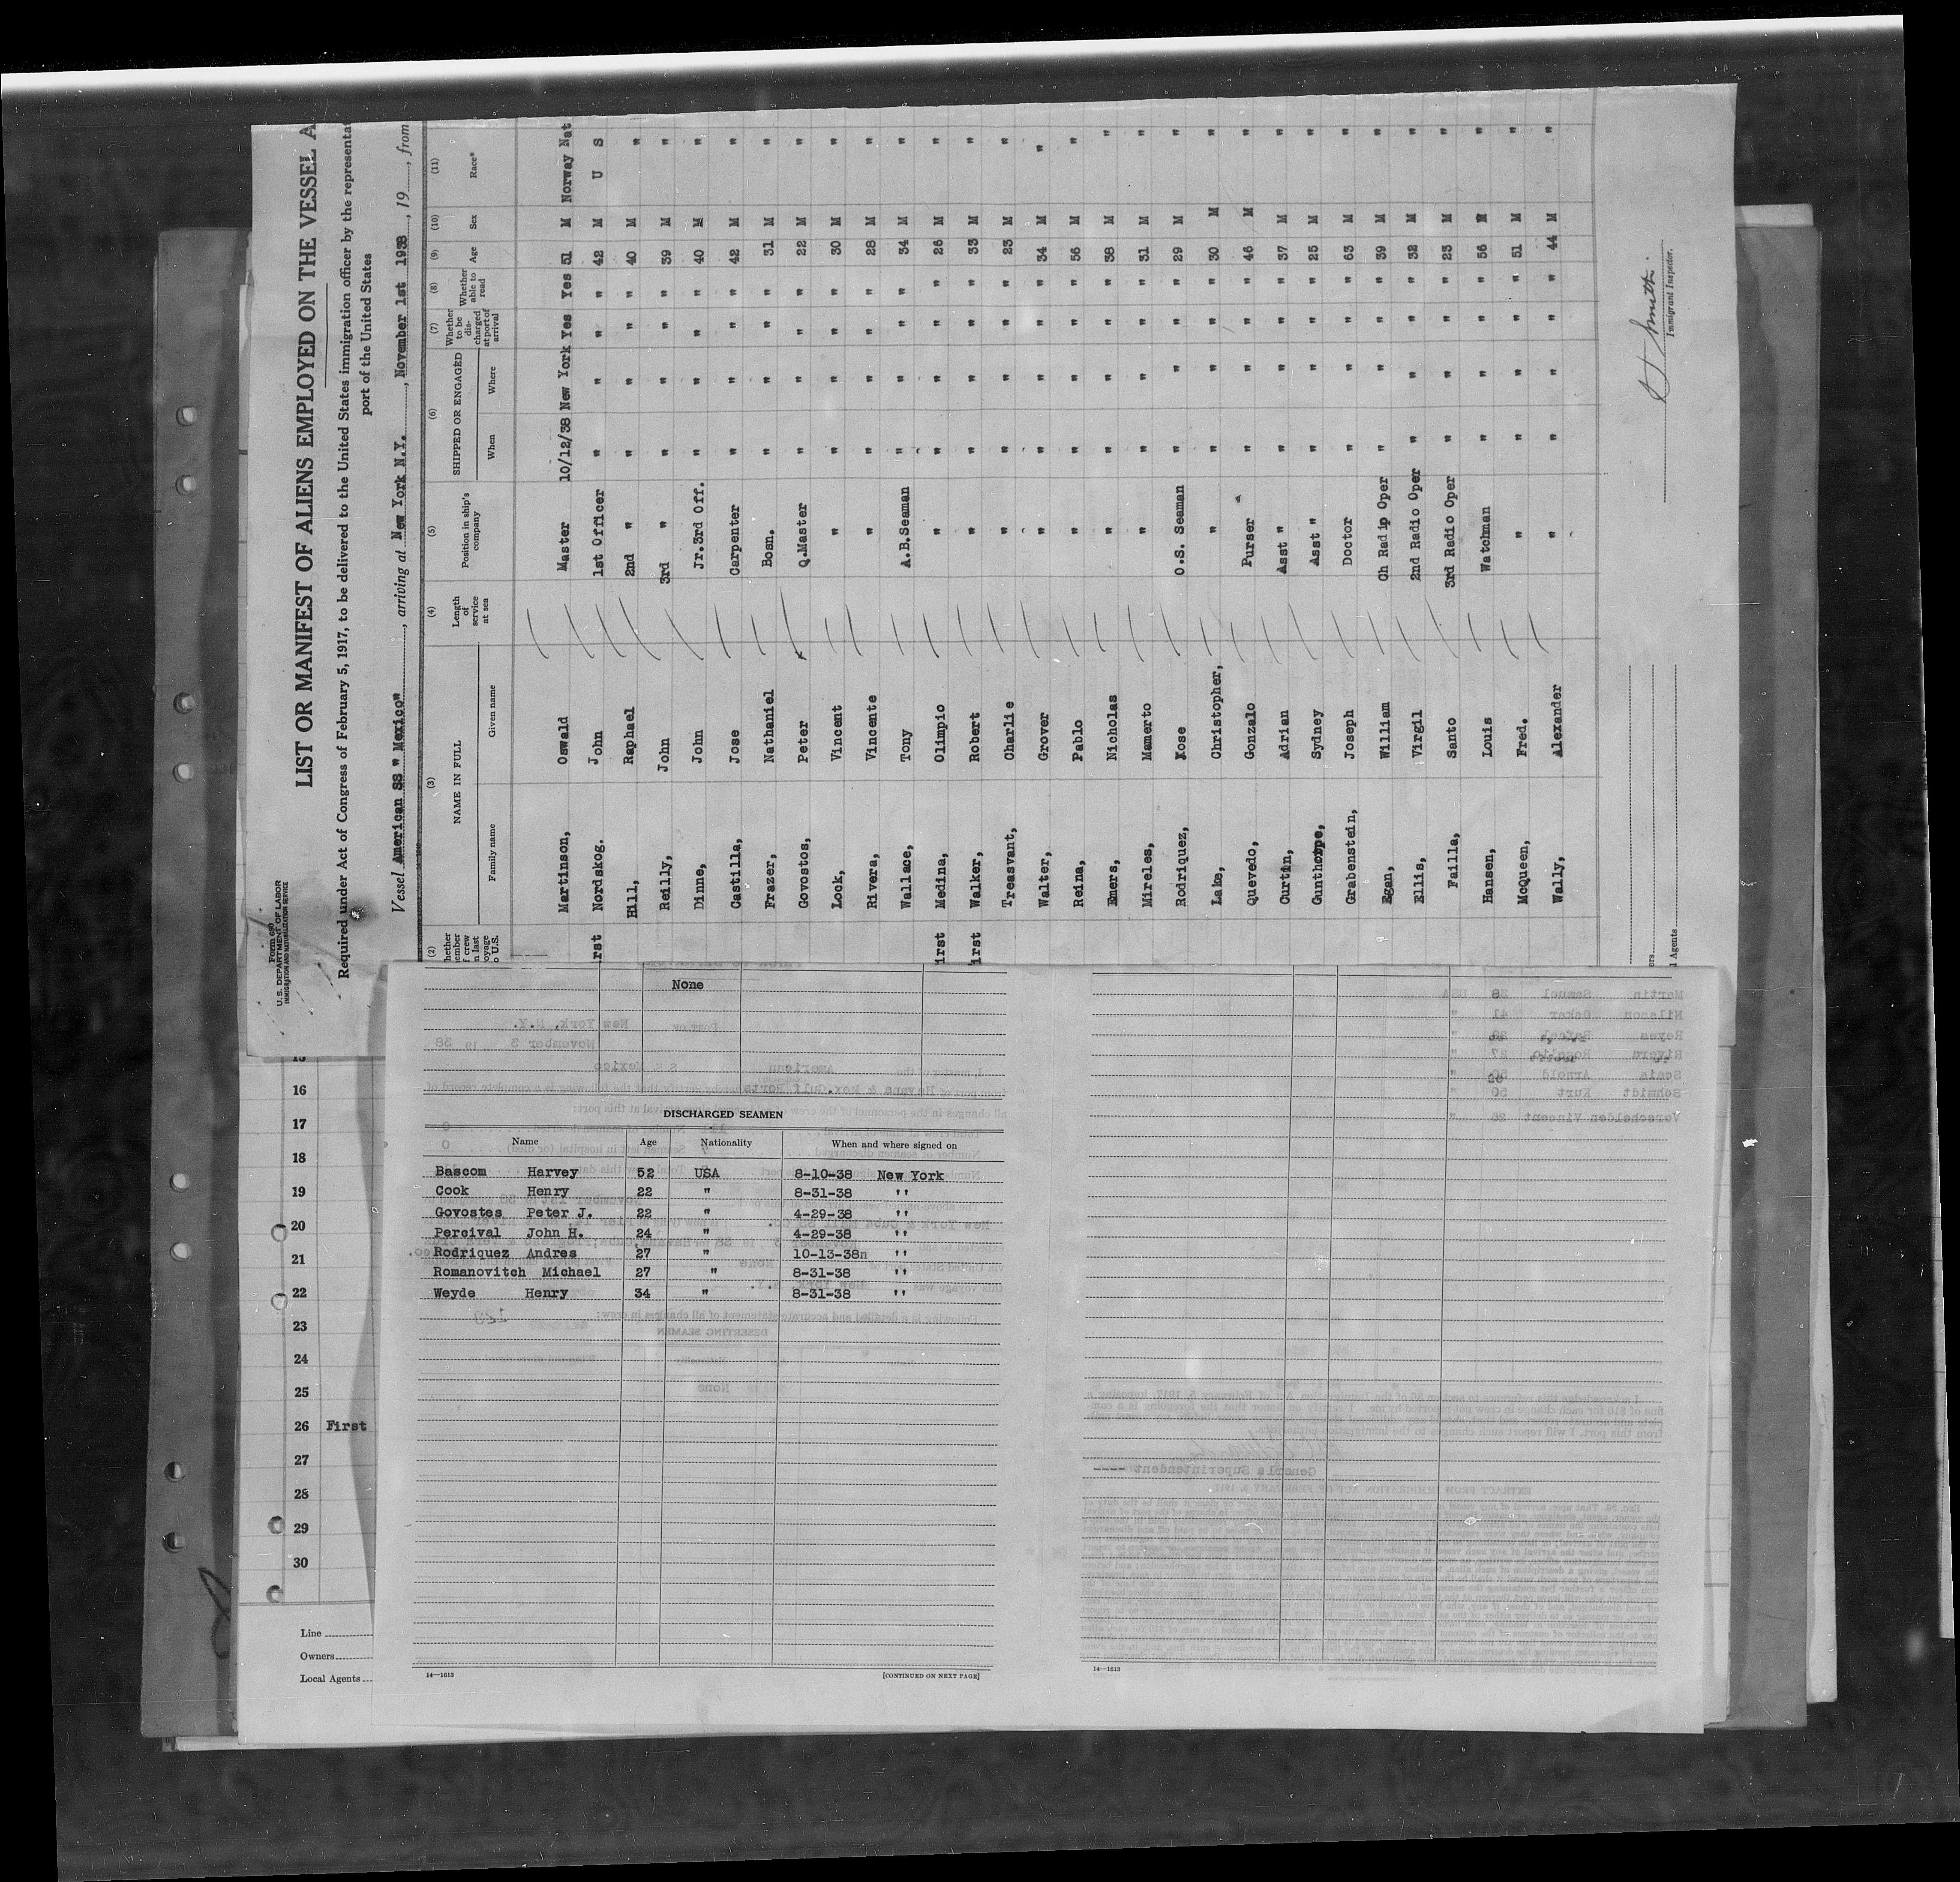 Form 680
U.S. DEPARTMENT OF LABOR
IMMIGRATION AND NATURALIZATION SERVICE
LIST OR MANIFEST OF ALIENS EMPLOYED ON THE VESSEL A
Required under Act of Congress of February 5, 1917, to be delivered to the United States immigration officer by the representat
port of the United States
Vessel American SS " Mexico" , arriving at New York N.Y. , November 1st 1938 , 19 , from
(2) (3) (4) (5) (6) (7) (8) (9) (10) (11)
hether ember f crew n last oyage o U.S. NAME IN FULL Family name Given name Length of service at sea Position in ship's company SHIPPED OR ENGAGED When Where Whether to be dis- charged at port of arrival Whether able to read Age Sex Race*
Martinson, Oswald Master 10/12/38 New York Yes Yes 51 M Norway Nat
rst Nordskog. John 1st Officer " " " " 42 M U S
Hill, Raphael 2nd " " " " " 40 M "
Reilly, John 3rd " " " " " 39 M "
Dinne, John Jr.3rd Off. " " " " 40 M "
Castilla, Jose Carpenter " " " " 42 M "
Frazer, Nathaniel Bosn. " " " " 31 M "
Govostos, Peter Q.Master " " " " 22 M "
Lock, Vincent " " " " " 30 M "
Rivera, Vincente " " " " " 28 M "
Wallace, Tony A.B.Seaman " " " " 34 M "
irst Medina, Olimpio " " " " " 26 M "
irst Walker, Robert " " " " " 33 M "
Treasvant, Charlie " " " " " 23 M "
Walter, Grover " " " " " 34 M "
Reina, Pablo " " " " " 56 M "
Emers, Nicholas " " " " " 38 M "
Mireles, Mamerto " " " " " 31 M "
Rodriquez, Xose O.S. Seaman " " " " 29 M "
Lake, Christopher, " " " " " 30 M "
Quevedo, Gonzalo Purser " " " " 46 M "
Curtin, Adrian Asst " " " " " 37 M "
Gunthorpe, Sydney Asst " " " " " 25 M "
Grabenstein, Joseph Doctor " " " " 63 M "
Egan, William Ch Radio Oper " " " " 39 M "
Ellis, Virgil 2nd Radio Oper " " " " 32 M "
Failla, Santo 3rd Radio Oper " " " " 23 M "
Hansen, Louis Watchman " " " " 56 M "
McQueen, Fred. " " " " " 51 M "
Wally, Alexander " " " " " 44 M "
ers
l Agents
Immigrant Inspector.
None
DISCHARGED SEAMEN
Name Age Nationality When and where signed on
Bascom Harvey 52 USA 8-10-38 New York
Cook Henry 22 " 8-31-38 ''
Govostes Peter J. 22 " 4-29-38 ''
Percival John H. 24 " 4-29-38 ''
Rodriquez Andres 27 " 10-13-38n ''
Romanovitch Michael 27 " 8-31-38 ''
Weyde Henry 34 " 8-31-38 ''
14—1613 [CONTINUED ON NEXT PAGE]
14—1613
15
16
17
18
19
20
21
22
23
24
25
26 First
27
28
29
30
Line
Owners
Local Agents